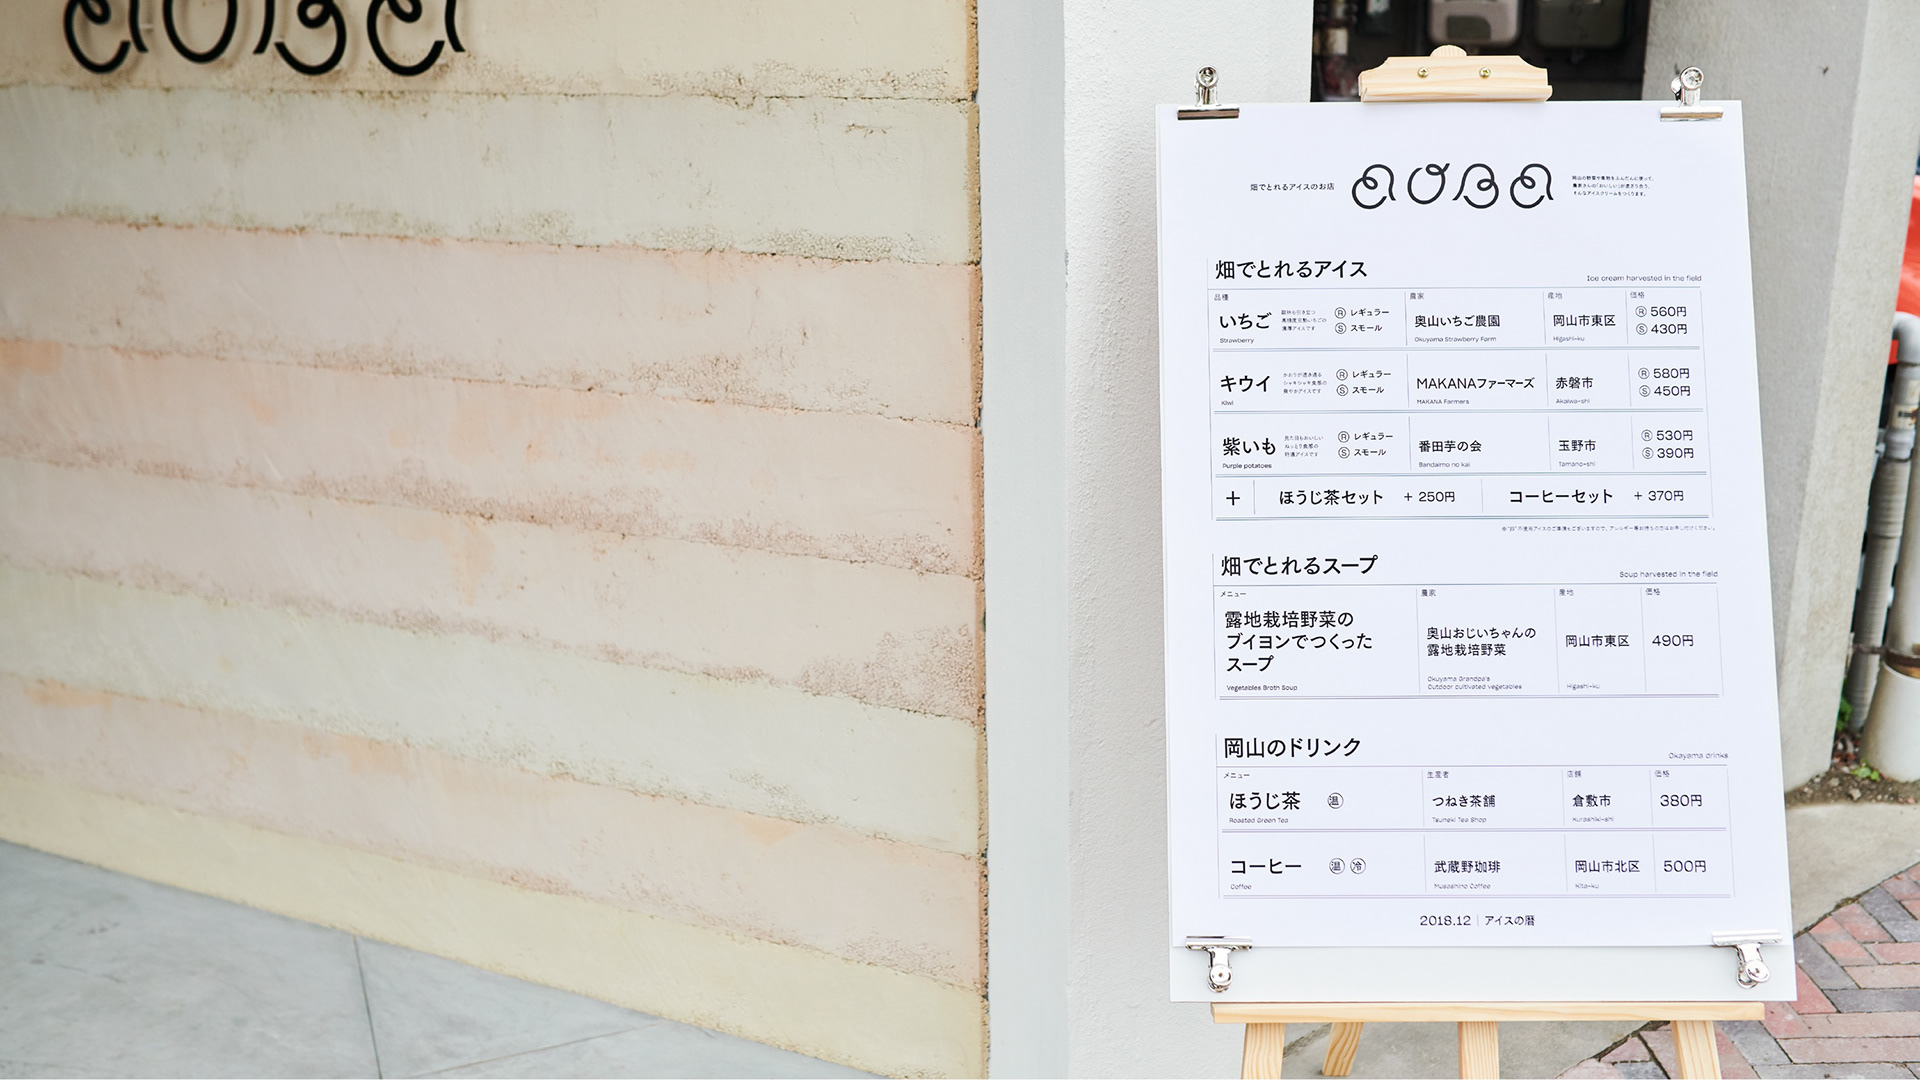 AOBA
畑でとれるアイスのお店
AOBA
畑でとれるアイス
Ice cream harvested in the field
品種 農家 産地 価格
いちご Ⓡ レギュラー 奥山いちご農園 岡山市東区 Ⓡ 560円
Ⓢ スモール Ⓢ 430円
Strawberry Okuyama Strawberry Farm Higashi-ku
キウイ Ⓡ レギュラー MAKANAファーマーズ 赤磐市 Ⓡ 580円
Ⓢ スモール Ⓢ 450円
Kiwi MAKANA Farmers Akaiwa-shi
紫いも Ⓡ レギュラー 番田芋の会 玉野市 Ⓡ 530円
Ⓢ スモール Ⓢ 390円
Purple potatoes Bandaimo no kai Tamano-shi
+ ほうじ茶セット + 250円 コーヒーセット + 370円
畑でとれるスープ
Soup harvested in the field
メニュー 農家 産地 価格
露地栽培野菜の
ブイヨンでつくった
スープ
Vegetables Broth Soup
奥山おじいちゃんの
露地栽培野菜
Okuyama Grandpa's
Outdoor cultivated vegetables
岡山市東区
Higashi-ku
490円
岡山のドリンク
Okayama drinks
メニュー 生産者 店舗 価格
ほうじ茶 温 つねき茶舗 倉敷市 380円
Roasted Green Tea Tsuneki Tea Shop Kurashiki-shi
コーヒー 温 冷 武蔵野珈琲 岡山市北区 500円
Coffee Musashino Coffee Kita-ku
2018.12 | アイスの暦